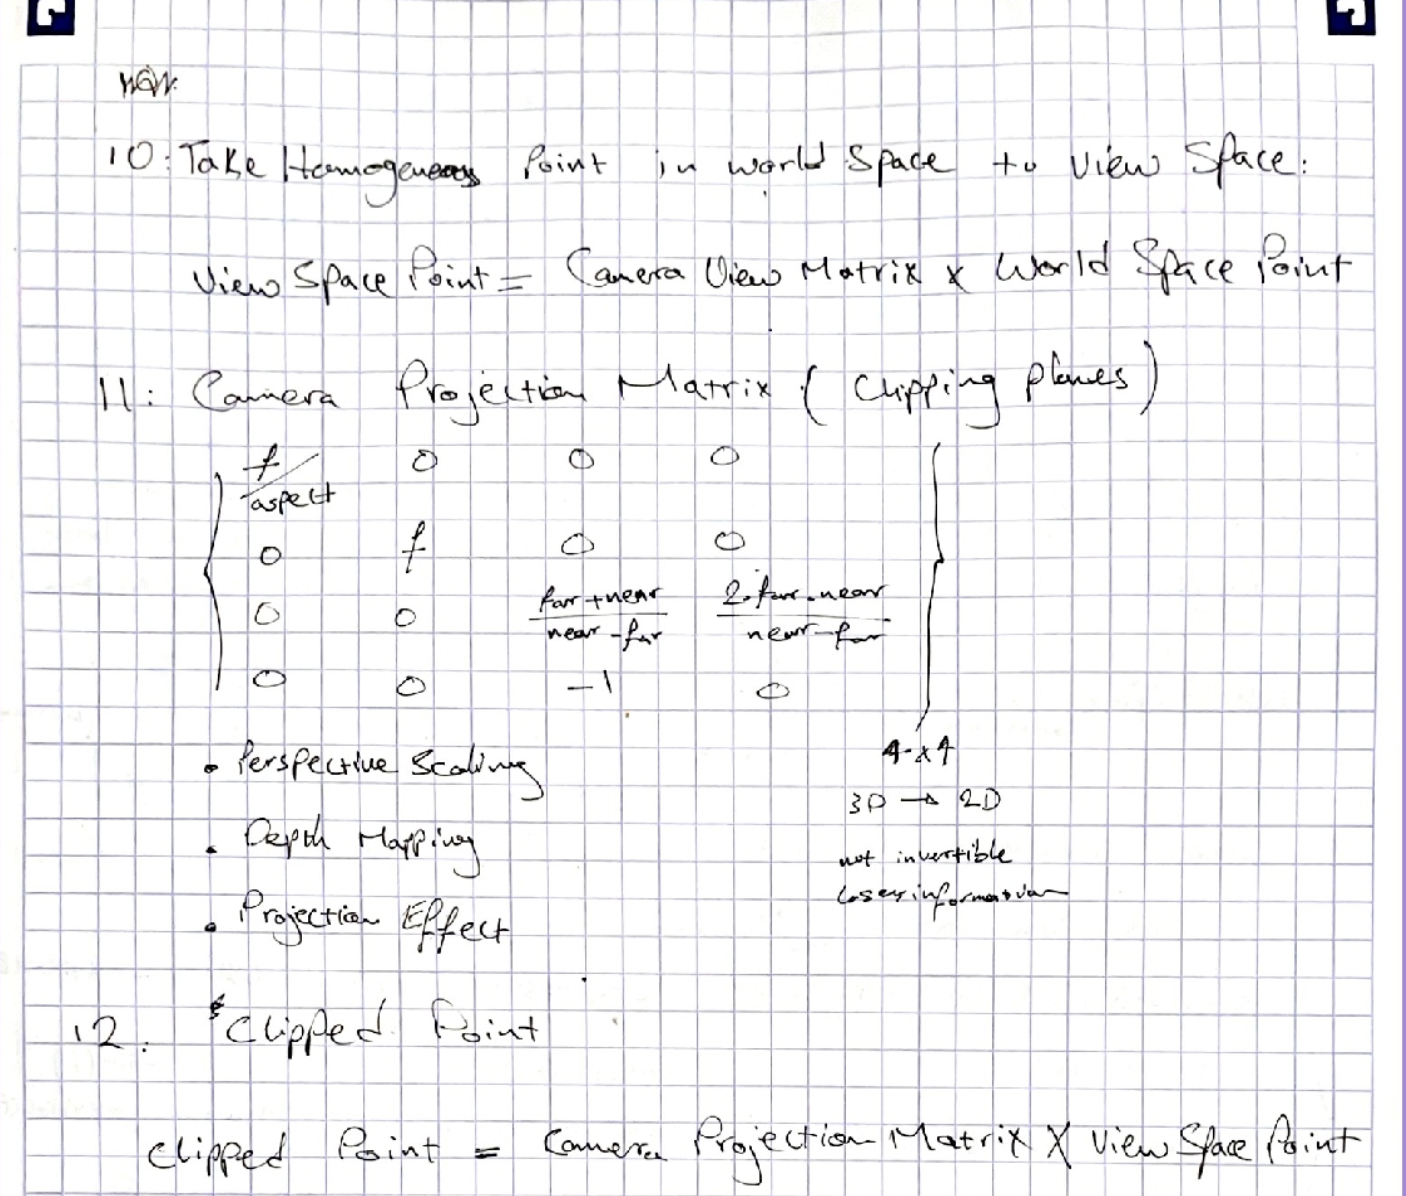 10: Take Homogeneous Point in world Space to View Space:
View Space Point = Camera View Matrix x World Space Point
11: Camera Projection Matrix ( Clipping planes )
f/aspect 0 0 0
0 f 0 0
0 0 far + near / near - far 2. far. near / near - far
0 0 -1 0
4x4
• Perspective Scaling
3D → 2D
• Depth Mapping
not invertible
loses information
• Projection Effect
12. Clipped Point
Clipped Point = Camera Projection Matrix X View Space Point